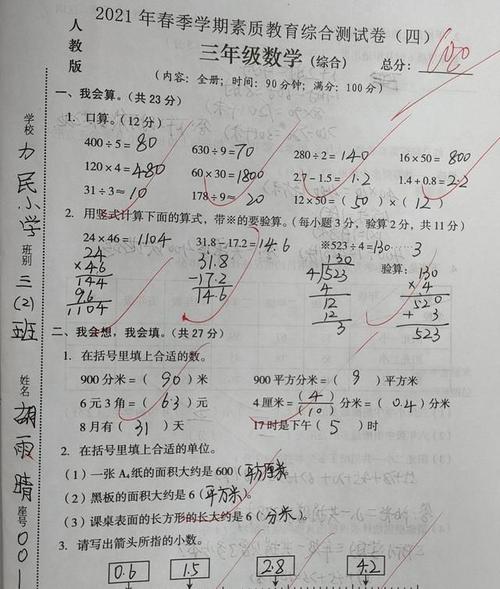 2021年春季学期素质教育综合测试卷（四）
人教版
三年级数学（综合）
总分：100
（内容：全册；时间：90分钟；满分：100分）
学校 力民小学 班别 三(2)班 姓名 胡雨晴 座号 001
一、我会算。（共23分）
1. 口算。（12分）
400÷5=80 630÷9=70 280÷2=140 16×50=800
120×4=480 60×30=1800 2.7-1.5=1.2 1.4+0.8=2.2
31÷3≈10 178÷9≈20 12×50=(50)×(12)
2. 用竖式计算下面的算式，带※的要验算。（每小题3分，验算2分，共11分）
24×46=1104 31.8-17.2=14.6 ※523÷4=130……3
24 31.8 130 验算：130
×46 -17.2 4√523 ×4
144 14.6 4 520
96 12 +3
1104 12 523
3
二、我会想，我会填。（共27分）
1. 在括号里填上合适的数。
900分米=(90)米 900平方分米=(9)平方米
6元3角=(6.3)元 4厘米=(4)/(10)分米=(0.4)分米
8月有(31)天 17时是下午(5)时
2. 在括号里填上合适的单位。
(1)一张A₄纸的面积大约是600(平方厘米)
(2)黑板的面积大约是6(平方米)。
(3)课桌表面的长方形的长大约是6(分米)。
3. 请写出箭头所指的小数。
0.6 1.5 2.8 4.2